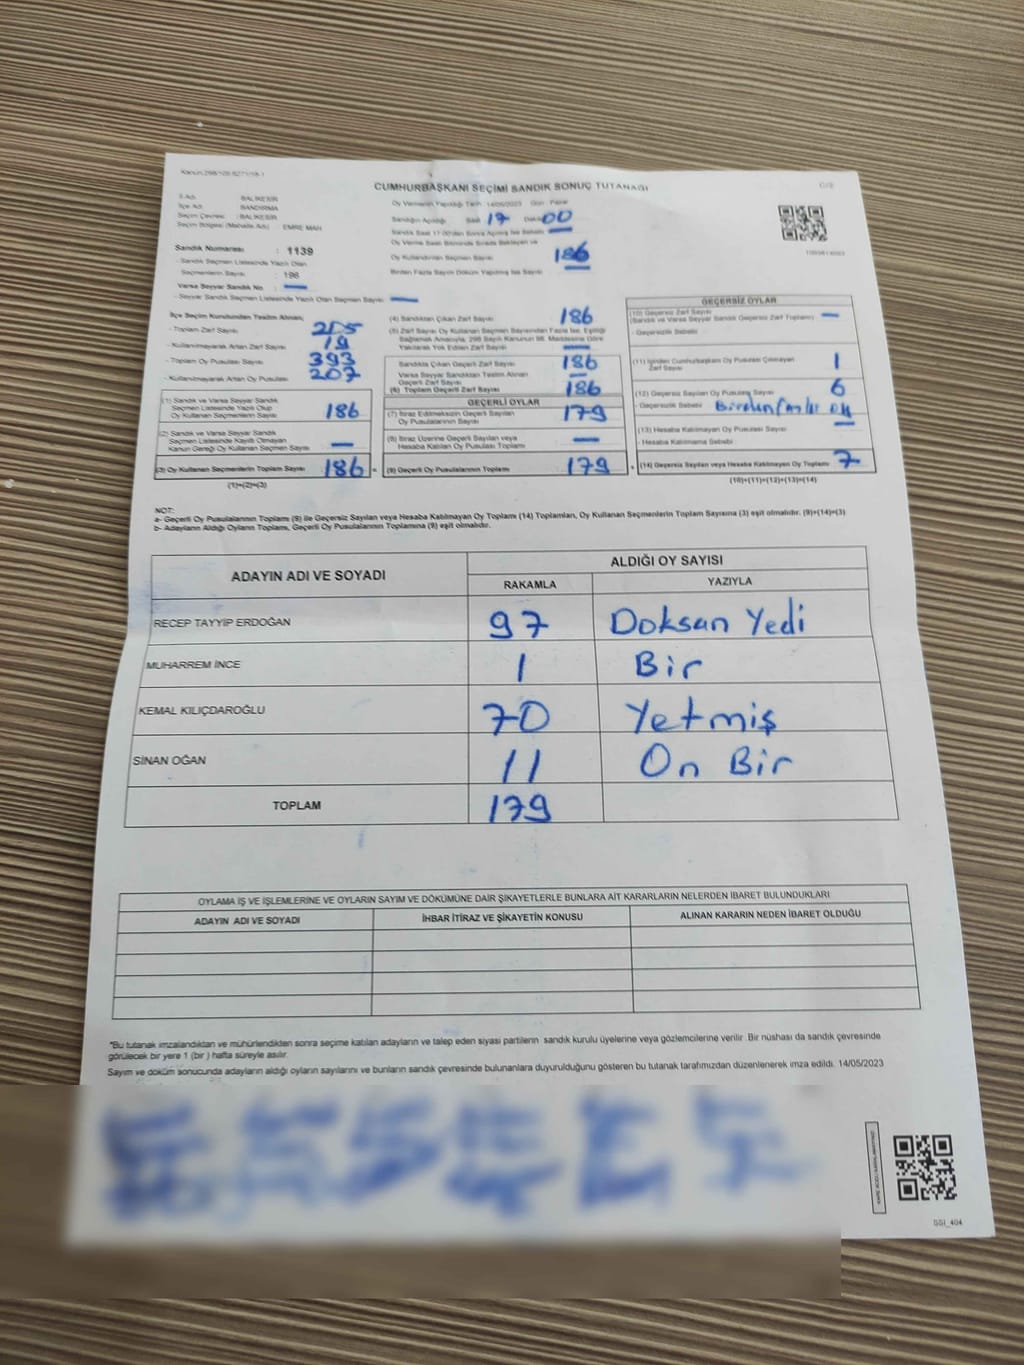 Kanun:298/105 6271/18.1
CUMHURBAŞKANI SEÇİMİ SANDIK SONUÇ TUTANAĞI
İl Adı : BALIKESİR
İlçe Adı : BANDIRMA
Seçim Çevresi : BALIKESİR
Seçim Bölgesi (Mahalle Adı) : EMRE MAH
Sandık Numarası : 1139
- Sandık Seçmen Listesinde Yazılı Olan
Seçmenlerin Sayısı : 196
Varsa Seyyar Sandık No —
- Seyyar Sandık Seçmen Listesinde Yazılı Olan Seçmen Sayısı —
Oy Vermenin Yapıldığı Tarih : 14/05/2023 Gün : Pazar
Sandığın Açıldığı Saat 17 Dakika 00
Sandık Saat 17.00'den Sonra Açılmış İse Sebebi —
Oy Verme Saati Bitiminde Sırada Bekleyen ve
Oy Kullandırılan Seçmen Sayısı 186
Birden Fazla Sayım Döküm Yapılmış İse Sayısı —
İlçe Seçim Kurulundan Teslim Alınan;
- Toplam Zarf Sayısı 205
- Kullanılmayarak Artan Zarf Sayısı 19
- Toplam Oy Pusulası Sayısı 393
- Kullanılmayarak Artan Oy Pusulası 207
(1) Sandık ve Varsa Seyyar Sandık
Seçmen Listesinde Yazılı Olup
Oy Kullanan Seçmenlerin Sayısı 186
(2) Sandık ve Varsa Seyyar Sandık
Seçmen Listesinde Kayıtlı Olmayan
Kanun Gereği Oy Kullanan Seçmen Sayısı —
(3) Oy Kullanan Seçmenlerin Toplam Sayısı 186 =
(1)+(2)=(3)
(4) Sandıktan Çıkan Zarf Sayısı 186
(5) Zarf Sayısı Oy Kullanan Seçmen Sayısından Fazla İse, Eşitliği
Sağlamak Amacıyla, 298 Sayılı Kanunun 98. Maddesine Göre
Yakılarak Yok Edilen Zarf Sayısı —
Sandıkta Çıkan Geçerli Zarf Sayısı 186
Varsa Seyyar Sandıktan Teslim Alınan
Geçerli Zarf Sayısı —
(6) Toplam Geçerli Zarf Sayısı 186
GEÇERLİ OYLAR
(7) İtiraz Edilmeksizin Geçerli Sayılan
Oy Pusulası Sayısı 179
(8) İtiraz Üzerine Geçerli Sayılan veya
Hesaba Katılan Oy Pusulası Toplamı —
(9) Geçerli Oy Pusulalarının Toplamı 179 +
GEÇERSİZ OYLAR
(10) Geçersiz Zarf Sayısı
(Sandık ve Varsa Seyyar Sandık Geçersiz Zarf Toplamı) —
- Geçersizlik Sebebi
(11) İçinden Cumhurbaşkanı Oy Pusulası Çıkmayan
Zarf Sayısı 1
(12) Geçersiz Sayılan Oy Pusulası Sayısı 6
- Geçersizlik Sebebi Birden fazla oy
(13) Hesaba Katılmayan Oy Pusulası Sayısı —
- Hesaba Katılmama Sebebi
(14) Geçersiz Sayılan veya Hesaba Katılmayan Oy Toplamı 7
(10)+(11)+(12)+(13)=(14)
NOT:
a- Geçerli Oy Pusulalarının Toplamı (9) ile Geçersiz Sayılan veya Hesaba Katılmayan Oy Toplamı (14) Toplamları, Oy Kullanan Seçmenlerin Toplam Sayısına (3) eşit olmalıdır. (9)+(14)=(3)
b- Adayların Aldığı Oyların Toplamı, Geçerli Oy Pusulalarının Toplamına (9) eşit olmalıdır.
ADAYIN ADI VE SOYADI
ALDIĞI OY SAYISI
RAKAMLA YAZIYLA
RECEP TAYYİP ERDOĞAN 97 Doksan Yedi
MUHARREM İNCE 1 Bir
KEMAL KILIÇDAROĞLU 70 Yetmiş
SİNAN OĞAN 11 On Bir
TOPLAM 179
OYLAMA İŞ VE İŞLEMLERİNE VE OYLARIN SAYIM VE DÖKÜMÜNE DAİR ŞİKAYETLERLE BUNLARA AİT KARARLARIN NELERDEN İBARET BULUNDUKLARI
ADAYIN ADI VE SOYADI İHBAR İTİRAZ VE ŞİKAYETİN KONUSU ALINAN KARARIN NEDEN İBARET OLDUĞU
"Bu tutanak imzalandıktan ve mühürlendikten sonra seçime katılan adayların ve talep eden siyasi partilerin sandık kurulu üyelerine veya gözlemcilerine verilir. Bir nüshası da sandık çevresinde
görülecek bir yere 1 (bir ) hafta süreyle asılır.
Sayım ve döküm sonucunda adayların aldığı oyların sayılarını ve bunların sandık çevresinde bulunanlara duyurulduğunu gösteren bu tutanak tarafımızdan düzenlenerek imza edildi. 14/05/2023
SSI_404